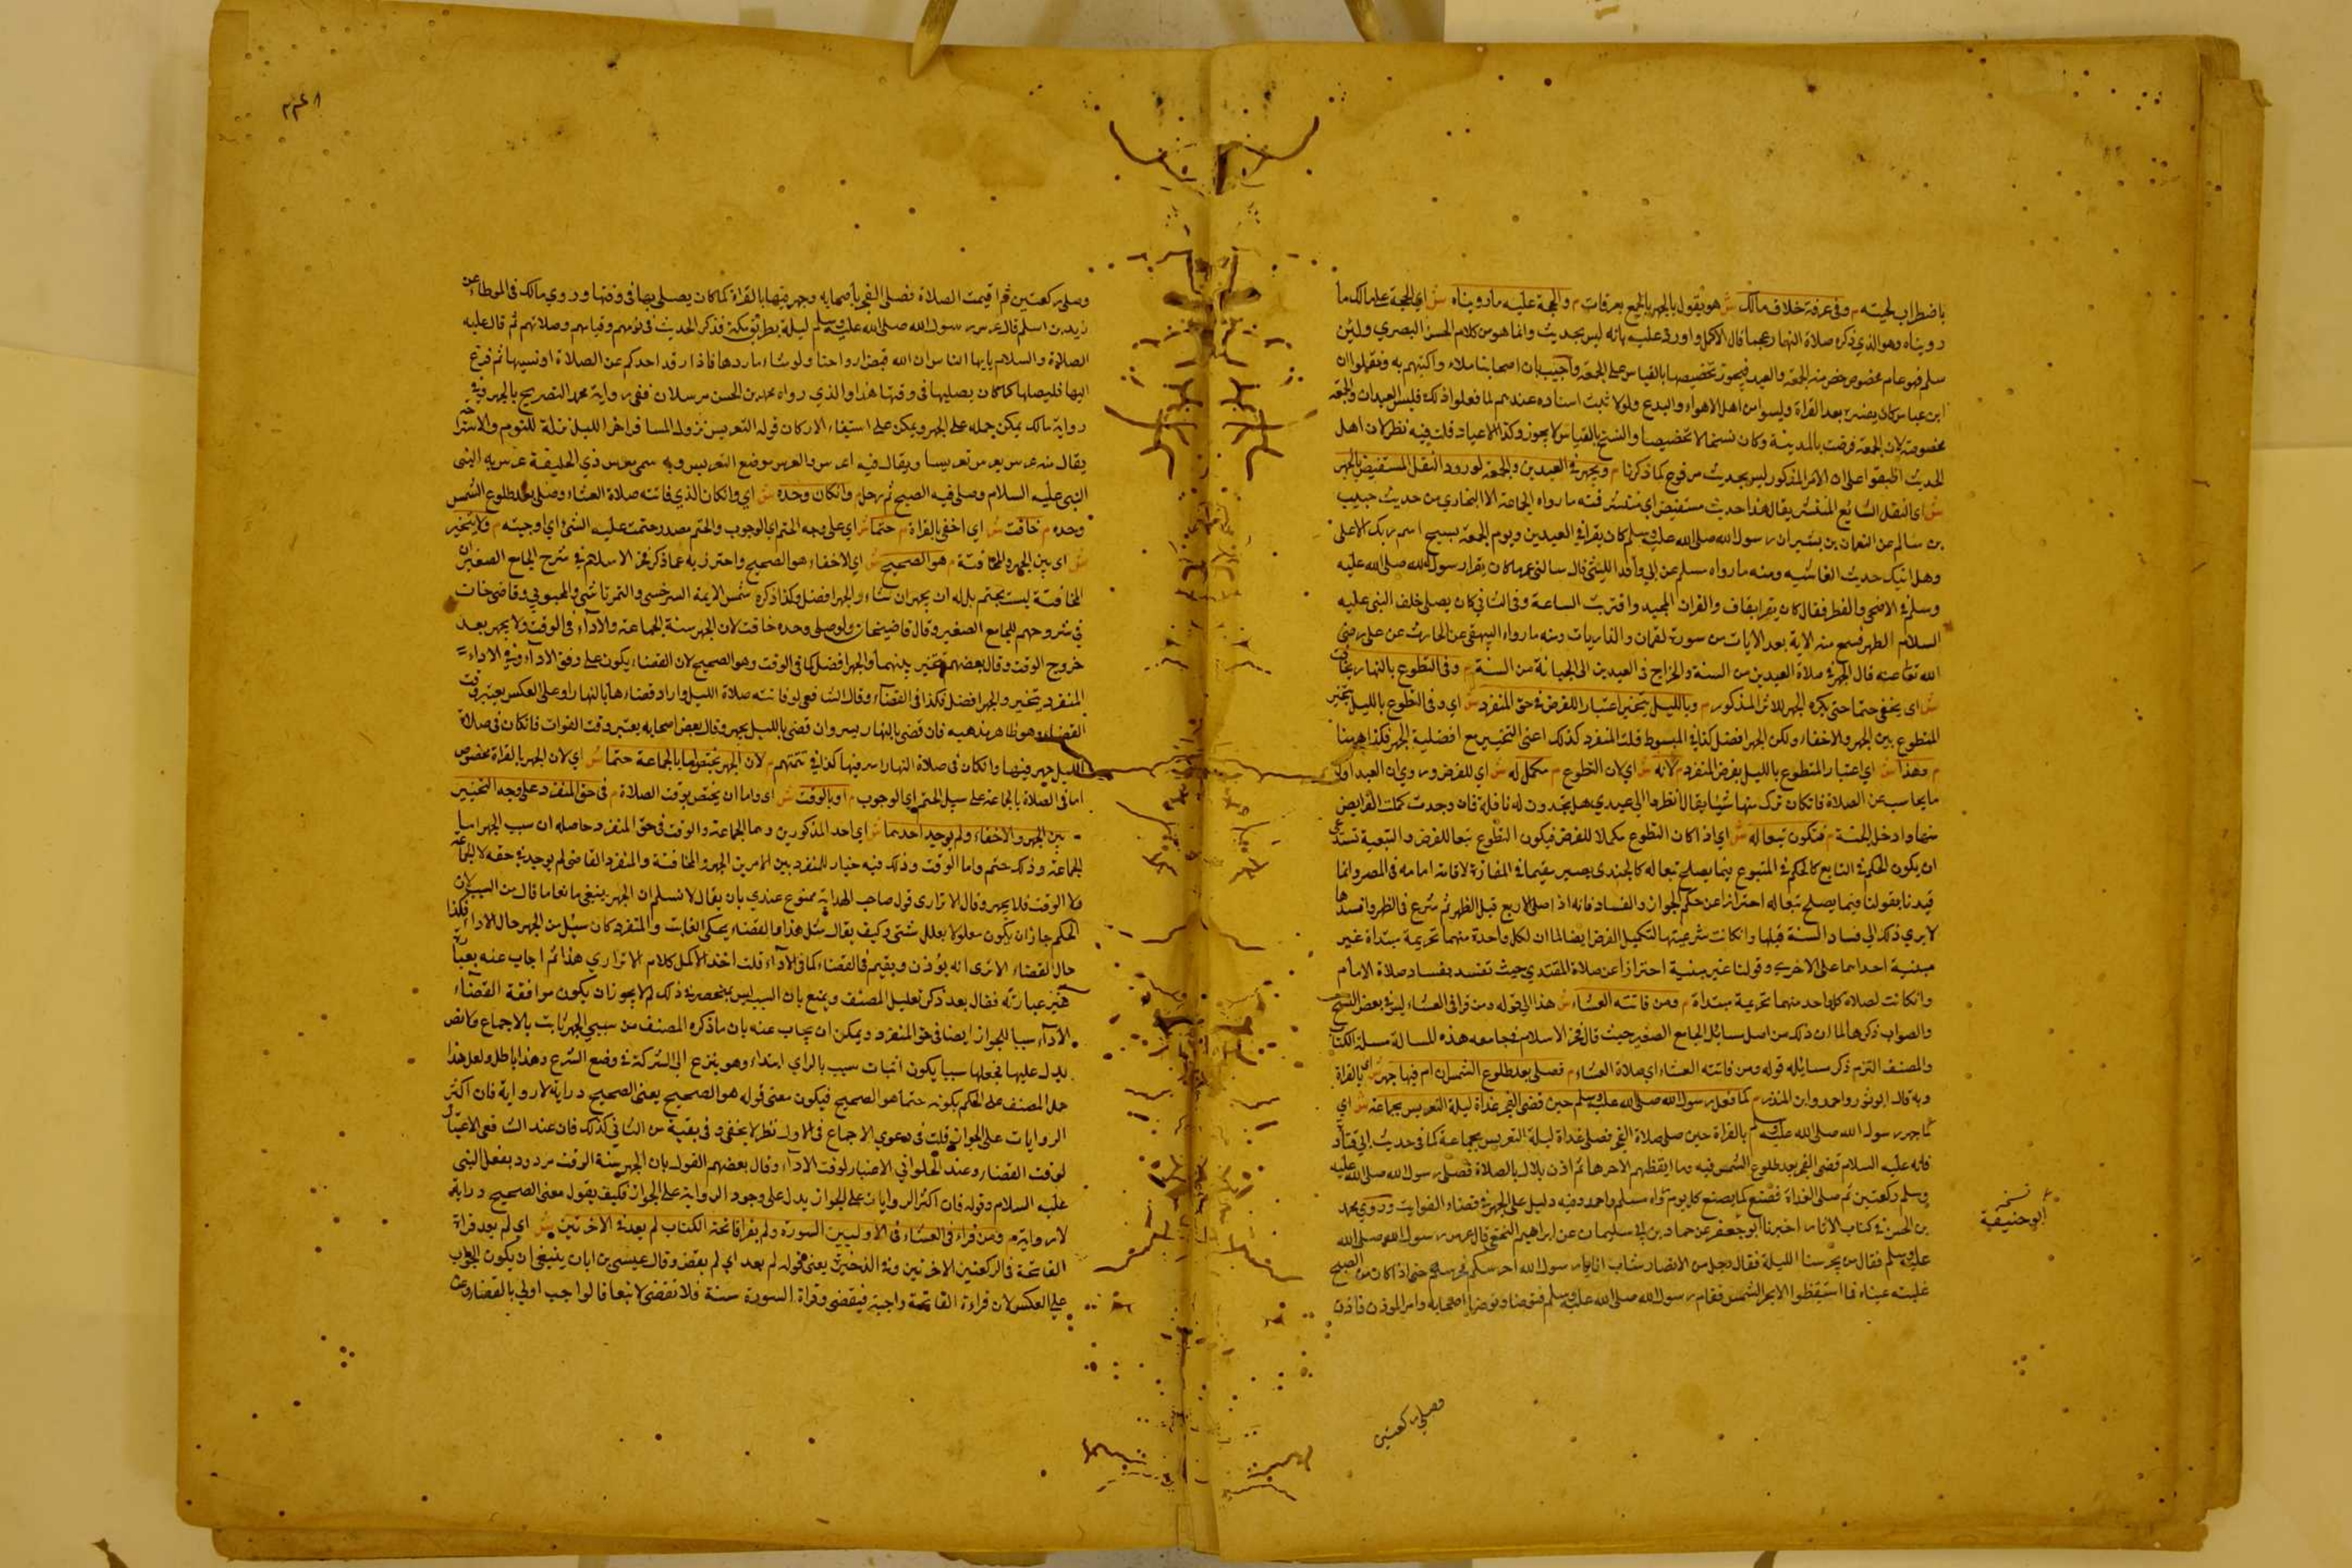 باضطراب لحيته م وفي عرفة خلاف مالك ش هو يقول بالجهر بالجمع بعرفات م والحجة عليه ما رويناه ش اي الحجة على مالك ما
رويناه وهو الذي ذكره صلاة النهار عجما قال الاكمل واورد عليه بانه ليس بحديث وانما هو من كلام الحسن البصري ولئن
سلم فهو عام مخصوص خص منه الجمعة والعيد فيجوز تخصيصها بالقياس على الجمعة واجيب بان اصحابنا
ابن عباس كان بعد القراة وليسوا من اهل الاهواء والبدع ولولا ثبت اسناده عندهم لما فعلوا ذلك فليس العيدان والجمعة
مخصوصة لان الجمعة فرضت بالمدينة وكان نسخا لا تخصيصا والنسخ بالقياس لا يجوز وكذا الاعياد قلت فيه نظر لان اهل
الحديث اطبقوا على ان الاثر المذكور ليس بحديث مرفوع كما ذكرنا م ويجهر في العيدين والجمعة لورود النقل المستفيض بالجهر
ش اي النقل الشايع المنتشر يقال هذا حديث مستفيض اي منتشر فمنه ما رواه الجماعة الا البخاري من حديث حبيب
بن سالم عن النعمان بن بشير ان رسول الله صلى الله عليه وسلم كان يقرا في العيدين ويوم الجمعة بسبح اسم ربك الاعلى
وهل اتيك حديث الغاشيه ومنه ما رواه مسلم عن ابي واقد الليثي قال سالني عمر ما كان يقرا رسول الله صلى الله عليه
وسلم في الاضحى والفطر فقال كان يقرا بقاف والقران المجيد واقتربت الساعة وفي الثاني كان يصلي خلف النبي عليه
السلام الظهر فسمع منه الاية بعد الايات من سورة لقمان والذاريات ومنه ما رواه البيهقي عن الحارث عن علي رضي
الله تعا عنه قال الجهر في صلاة العيدين من السنة والخروج في العيدين الى الجبانة من السنة م وفي التطوع بالنهار يخافت
ش اي يخفي حتما حتى يكره الجهر للاثر المذكور م وبالليل يتخير اعتبارا للفرض في حق المنفرد ش اي وفي التطوع بالليل يتخير
المتطوع بين الجهر والاخفاء ولكن الجهر افضل كذا في المبسوط قلت المنفرد كذلك اعني التخيير مع افضلية الجهر فكذا ههنا
م وهذا ش اي اعتبار المتطوع بالليل بفرض المنفرد م لانه ش اي لان التطوع م مكمل له ش اي للفرض وروي ان العبد اول
ما يحاسب عن الصلاة فان كان ترك منها شيئا يقال انظروا الى عبدي هل تجدون له نافلة فان وجدت كملت الفرايض
منها وادخل الجنة م فتكون تبعا له ش اي اذا كان التطوع مكملا للفرض فيكون التطوع تبعا للفرض والتبعية تستدعي
ان يكون الحكم في التابع كالحكم في المتبوع فيما يصلح تبعا له كالجندي يصير مقيما في المفازة لاقامة امامه في المصر وانما
قيدنا بقولنا فيما يصلح تبعا له احترازا عن حكم الجواز والفساد فانه اذا صلى الاربع قبل الظهر ثم شرع في الظهر وافسدها
لا يسري ذلك الى فساد السنة قبلها وان كانت شرعيتها لتكميل الفرض ايضا لما ان لكل واحدة منهما تحريمة مبتداة غير
مبنية احداهما على الاخرى وقولنا غير مبنية احترازا عن صلاة المقتدي حيث تفسد بفساد صلاة الامام
وان كانت لصلاة كل واحد منهما تحريمة مبتداة م ومن فاتته العشاء ش هذا الى قوله ومن قرا في العشاء ليس في بعض النسخ
والصواب ذكرها لما ان ذلك من اصل مسائل الجامع الصغير حيث قال فخر الاسلام في جامعه هذه المسالة مسالة الكتاب
والمصنف التزم ذكر مسايله قوله ومن فاتته العشاء اي صلاة العشاء م فصلى بعد طلوع الشمس ان ام فيها جهر ش اي بالقراة
وبه قال ابو ثور واحمد وابن المنذر م كما فعل رسول الله صلى الله عليه وسلم حين قضى الفجر غداة ليلة التعريس بجماعة ش اي
كما جهر رسول الله صلى الله عليه وسلم بالقراة حين صلى صلاة الفجر فصلى غداة ليلة التعريس بجماعة كما في حديث ابي قتادة
فانه عليه السلام قضى الفجر بعد طلوع الشمس فيه وما ايقظهم الا حرها ثم اذن بلال بالصلاة فصلى رسول الله صلى الله عليه
وسلم ركعتين ثم صلى الغداة فصنع كما يصنع كل يوم رواه مسلم واحمد وفيه دليل على الجهر في قضاء الفوايت وروى محمد
بن الحسن في كتاب الاثار اخبرنا ابو جعفر عن حماد بن ابي سليمان عن ابراهيم النخعي قال عرس رسول الله صلى الله
عليه وسلم فقال من يحرسنا الليلة فقال رجل من الانصار شاب انا يا رسول الله احرسكم فحرسهم حتى اذا كان من الصبح
غلبته عيناه فما استيقظوا الا بحر الشمس فقام رسول الله صلى الله عليه وسلم فتوضا وتوضا اصحابه وامر الموذن فاذن
نسخـ
ابو حنيفة
فصلى ركعتين
وصلى ركعتين ثم اقيمت الصلاة فصلى الفجر باصحابه وجهر فيها بالقراة كما كان يصلي بها في وقتها وروي مالك في الموطا عن
زيد بن اسلم قال عرس رسول الله صلى الله عليه وسلم ليلة بطريق مكة فذكر الحديث في نومهم وقيامهم وصلاتهم ثم قال عليه
الصلاة والسلام يايها الناس ان الله قبض ارواحنا ولو شاء ما ردها فاذا رقد احدكم عن الصلاة او نسيها ثم فزع
اليها فليصلها كما كان يصليها في وقتها هذا والذي رواه محمد بن الحسن مرسلان ففي رواية محمد التصريح بالجهر وفي
رواية مالك يمكن حمله على الجهر ويمكن على استيفاء الاركان قوله التعريس نزول المسافر اخر الليل نزلة للنوم والاستراحة
يقال منه عرس يعرس تعريسا ويقال فيه اعرس والمعرس موضع التعريس وبه سمي معرس ذي الحليفة عرس به النبي
النبي عليه السلام وصلى فيه الصبح ثم رحل م وان كان وحده ش اي وان كان الذي فاتته صلاة العشاء وصلى بعد طلوع الشمس
وحده م خافت ش اي اخفى بالقراة م حتما ش اي على وجه الحتم اي الوجوب والحتم مصدر حتمت عليه الشيء اي اوجبته م ولا يتخير
ش اي بين الجهر والمخافتة م هو الصحيح ش اي الاخفاء هو الصحيح واحترز به عما ذكر فخر الاسلام في شرح الجامع الصغير ان
المخافتة ليست بحتم بل له ان يجهر ان شاء والجهر افضل وكذا ذكره شمس الايمة السرخسي والتمرتاشي والمحبوبي وقاضي خان
في شروحهم للجامع الصغير وقال قاضيخان ولو صلى وحده خافت لان الجهر سنة الجماعة والاداء في الوقت ولا يجهر بعد
خروج الوقت وقال بعضهم يتخير بينهما والجهر افضل كما في الوقت وهو الصحيح لان القضاء يكون على وفق الاداء وفي الاداء
المنفرد يتخير والجهر افضل فكذا في القضاء وقال الشافعي لو فاتته صلاة الليل واراد قضاءها بالنهار او على العكس يعتبر وقت
القضاء وهو ظاهر مذهبه فان قضى بالنهار يسر وان قضى بالليل يجهر وقال بعض اصحابه يعتبر وقت الفوات فان كان في صلاة
الليل جهر فيها وان كان في صلاة النهار اسر فيها كذا في تتمتهم م لان الجهر يختص اما بالجماعة حتما ش اي لان الجهر بالقراة مخصوص
اما في الصلاة بالجماعة على سبيل الحتم اي الوجوب م او بالوقت ش اي واما ان يختص بوقت الصلاة م في حق المنفرد على وجه التخيير
بين الجهر والاخفاء ولم يوجد احدهما ش اي احد المذكورين وهما الجماعة والوقت في حق المنفرد حاصله ان سبب الجهر اما
الجماعة وذلك حتم واما الوقت وذلك فيه خيار للمنفرد بين الامرين الجهر والمخافتة والمنفرد القاضي لم يوجد في حقه لا الجماعة
ولا الوقت فلا يجهر وقال الاترازي قول صاحب الهداية ممنوع عندي بان يقال لا نسلم ان الجهر ينتفي مانعا ما قال من السبب لان
الحكم جاز ان يكون معلولا بعلل شتى وكيف يقال مثل هذا والقضاء يحكي الفايت والمنفرد كان سبيل من الجهر حال الاداء فكذا
حال القضاء الا ترى انه يؤذن ويقيم في القضاء كما في الاداء قلت اخذ الاكمل كلام الاترازي هذا ثم اجاب عنه
غير عبارته فقال بعد ذكر تعليل المصنف ويمنع بان السبب ليس بمنحصر في ذلك لم لا يجوز ان يكون موافقة القضاء
الاداء سببا للجواز ايضا في حق المنفرد ويمكن ان يجاب عنه بان ما ذكره المصنف من سببي الجهر ثابت بالاجماع ولا نص
يدل عليها فجعلها سببا يكون اثبات سبب بالراي ابتداء وهو ينزع الى الشركة في وضع الشرع وهذا باطل ولعل هذا
حمل المصنف على الحكم بكونه حتما هو الصحيح فيكون معنى قوله هو الصحيح يعني الصحيح دراية لا رواية فان اكثر
الروايات على الجواز قلت في دعوى الاجماع في الاول نظر لا يخفى وفي بقية من الثاني كذلك فان عند الشافعي الاعتبار
لوقت القضاء وعند الحلواني الاعتبار لوقت الاداء وقال بعضهم القول بان الجهر سنة الوقت مردود بفعل النبي
عليه السلام وقوله فان اكثر الروايات على الجواز يدل على وجود الرواية على الجواز فكيف يقول معنى الصحيح دراية
لا رواية م ومن قراء في العشاء في الاوليين السورة ولم يقرا فاتحة الكتاب لم يعد في الاخرتين ش اي لم يعد قراة
الفاتحة في الركعتين الاخرتين وفي الذخيرة يعني قوله لم يعد اي لم يقض وقال عيسى بن ابان ينبغي ان يكون الجواب
على العكس لان قراءة الفاتحة واجبة فيقضى وقراة السورة سنة فلا تقضى لا تبعا قالوا جب اولى بالقضاء وعن